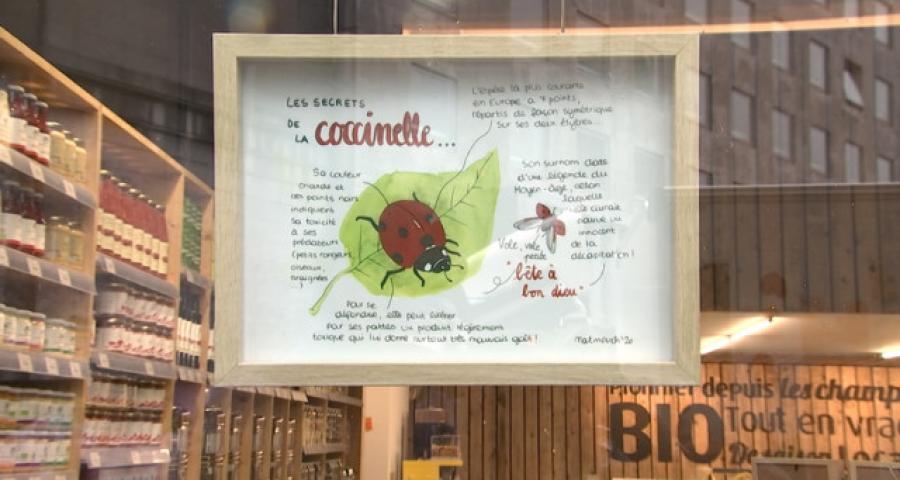 LES SECRETS
DE
LA coccinelle...
L'espèce la plus courante
en Europe a 7 points,
répartis de façon symétrique
sur ses deux élytres...
Sa couleur
criarde et
ses points noirs
indiquent
sa toxicité
à ses
prédateurs
(petits rongeurs,
oiseaux,
araignées
...)
Son surnom
d'une légende du
Moyen-Âge, selon
laquelle
elle aurait
sauvé un
innocent
de la
décapitation !
Vole, vole,
petite
"bête à
bon dieu"
Pour se
défendre, elle peut
par ses pattes un produit légèrement
toxique qui lui donne surtout très mauvais goût !
Pionnier depuis les champ
BIO Tout en vra
Loca